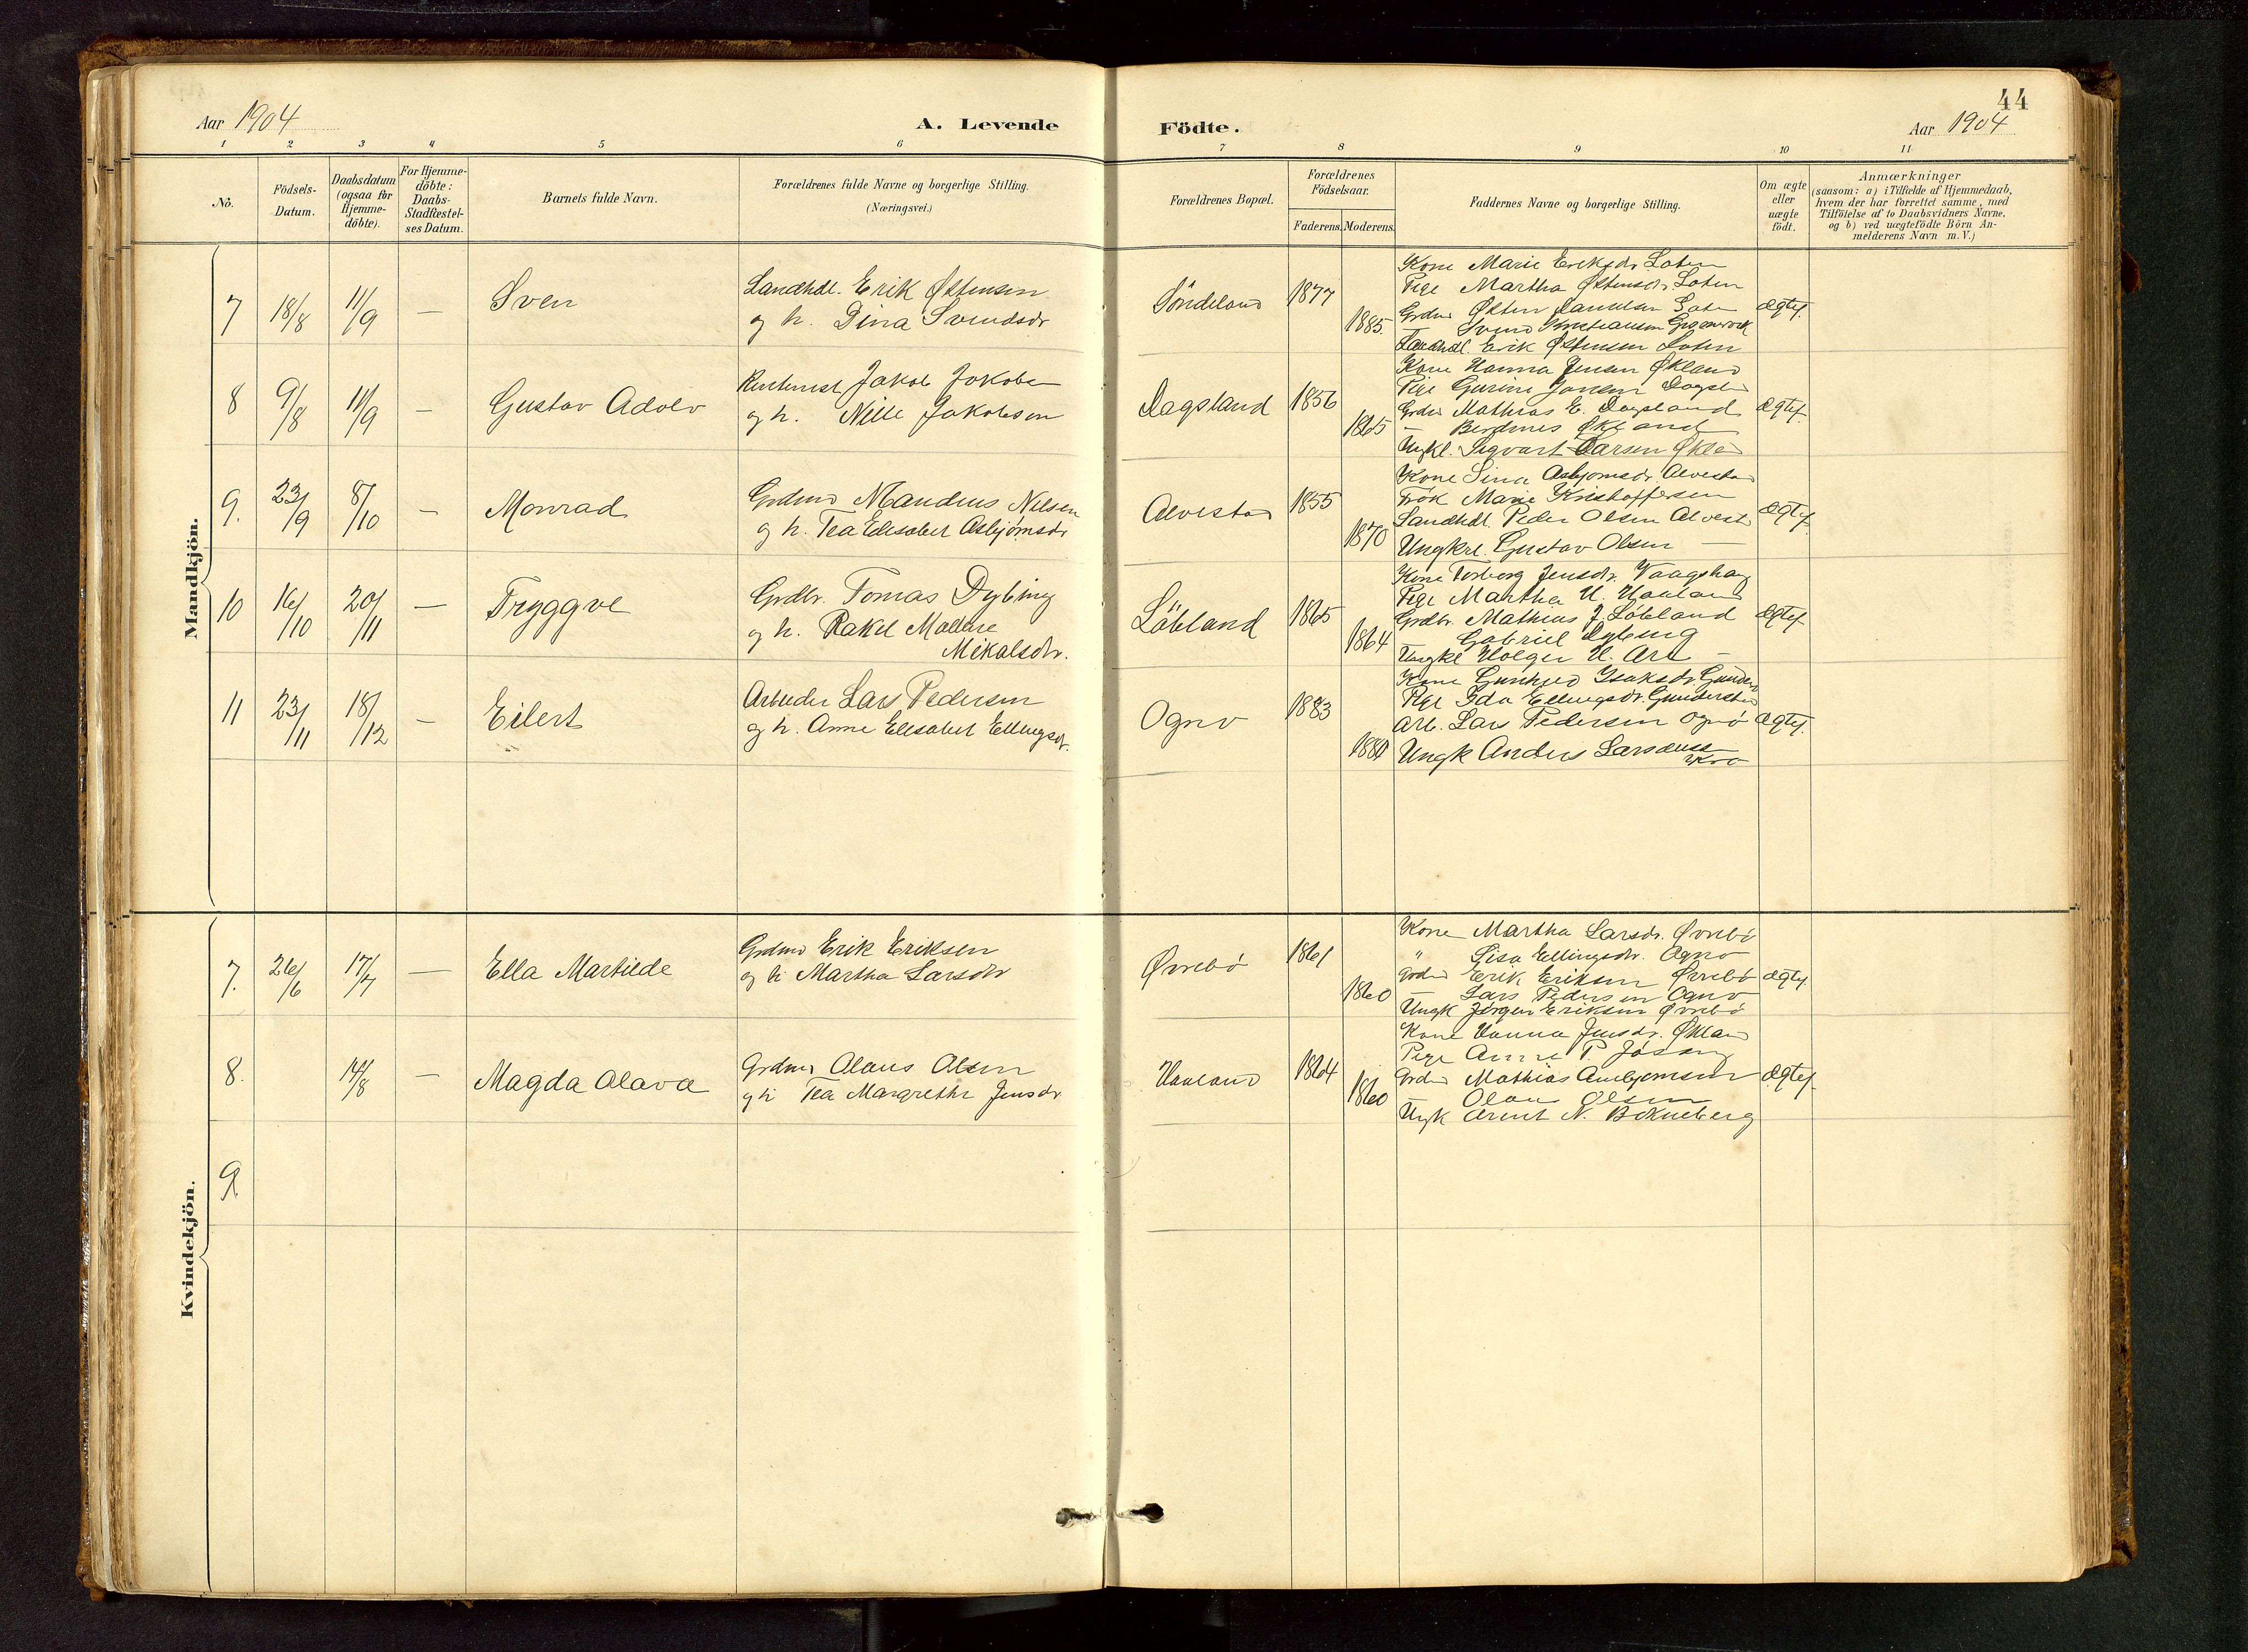 44
Aar 1904
A. Levende Födte.
Aar 1904
1 2 3 4 5 6 7 8 9 10 11
No.
Födsels-Datum.
Daabsdatum (ogsaa for Hjemme-döbte).
For Hjemme-döbte: Daabs-Stadfæstel-ses Datum.
Barnets fulde Navn.
Forældrenes fulde Navne og borgerlige Stilling.
(Næringsvei.)
Forældrenes Bopæl.
Forældrenes Födselsaar.
Faderens. Moderens.
Faddernes Navne og borgerlige Stilling.
Om ægte eller uægte födt.
Anmærkninger
(saasom: a) i Tilfælde af Hjemmedaab,
hvem der har forrettet samme, med
Tilföielse af to Daabsvidners Navne,
og b) ved uægtefödte Börn An-
melderens Navn m. V.)
Mandkjön.
7 18/8 11/9 — Sven
Landhdl. Erik Østensen
og h. Dina Svendsdr
Söndeland 1877 1885.
Kone Marie Eriksdr Loten
Pige Martha Østensdr Loten
Grdm Østen Danielsen
Svend Kristiansen
Landhdl. Erik Østensen Loten
Ægtef.
8 9/8 11/9 — Gustav Adolv
Jakob Jakobsen
og h. Nille Jakobsen
Dagsland 1856 1865
Kone Hanna Jensen Økland
Pige Gurine Jansen
Grdm Mathias E. Dagsland
— Berdines Økland
Ungkl. Sigvart Larsen
Ægtef.
9. 23/9 8/10 — Monrad
Grdmd Mandius Nilsen
og h. Tea Elisabet Asbjörnsdr
Alvestad 1855 1870
Kone Sina Asbjornsdr Alvestad
Frök Marie Kristoffersen
Landhdl. Peder Olsen Alvest
Ungkrl. Gustav Olsen —
Ægtef.
10 16/10 20/11 — Tryggve
Grdbr. Tomas Dybing
og h. Rakel Malene
Mikalsdr.
Löbland 1865 1864
Kone Torborg Jensdr. Vaagshaug
Pige Martha H. Haaland
Grdbr. Mathias J. Löbland
Gabriel Dybing
Ungkl Holger H. —
Ægtef
11 23/11 18/12 — Eilert
Arbeider Lars Pedersen
og h. Anne Elisabet Ellingsdr.
Ognö 1883 1881
Kone Gunhild Isaksdr
Pige Ida Ellingsdr.
Arb. Lars Pedersen Ognö
Ungk Anders Larsen
Ægtef.
Kvindekjön.
7. 26/6 17/7 — Ella Martilde
Grdmd Erik Eriksen
og h Martha Larsdr
Ørrebö 1861 1860
Kone Martha Larsdr. Ørrebö
" Lisa Ellingsdr. Ognö
Grdm Erik Eriksen Ørrebö
— Lars Pedersen Ognö
Ungk Jörgen Eriksen Ørrebö
Ægtef.
8. 14/8 — Magda Olava
Grdmd Olaus Olsen
og h Tea Margrethe Jensdr
Haaland 1864 1860
Kone Hanna Jensdr. Økland
Pige Anne P.
Grdm Mathias
Olaus Olsen
Ungk Arent N. Bokneberg
Ægtef.
9